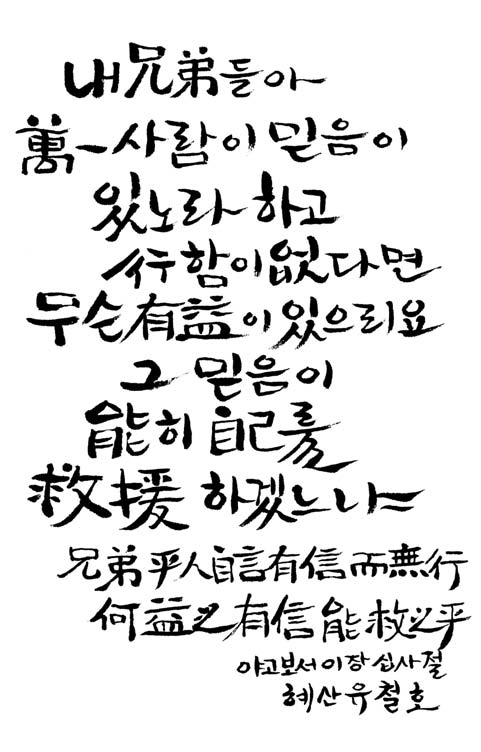 내兄弟들아
萬一사람이믿음이
있노라하고
行함이없다면
무슨有益이있으리요
그믿음이
能히自己를
救援하겠느냐
兄弟乎人自言有信而無行
何益之有信能救之乎
야고보서이장십사절
혜산유철호